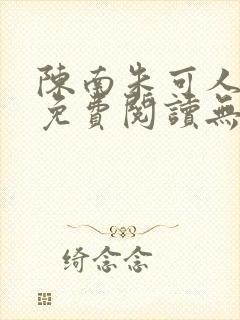 陳南朱可人
免費閱讀無
绮念念